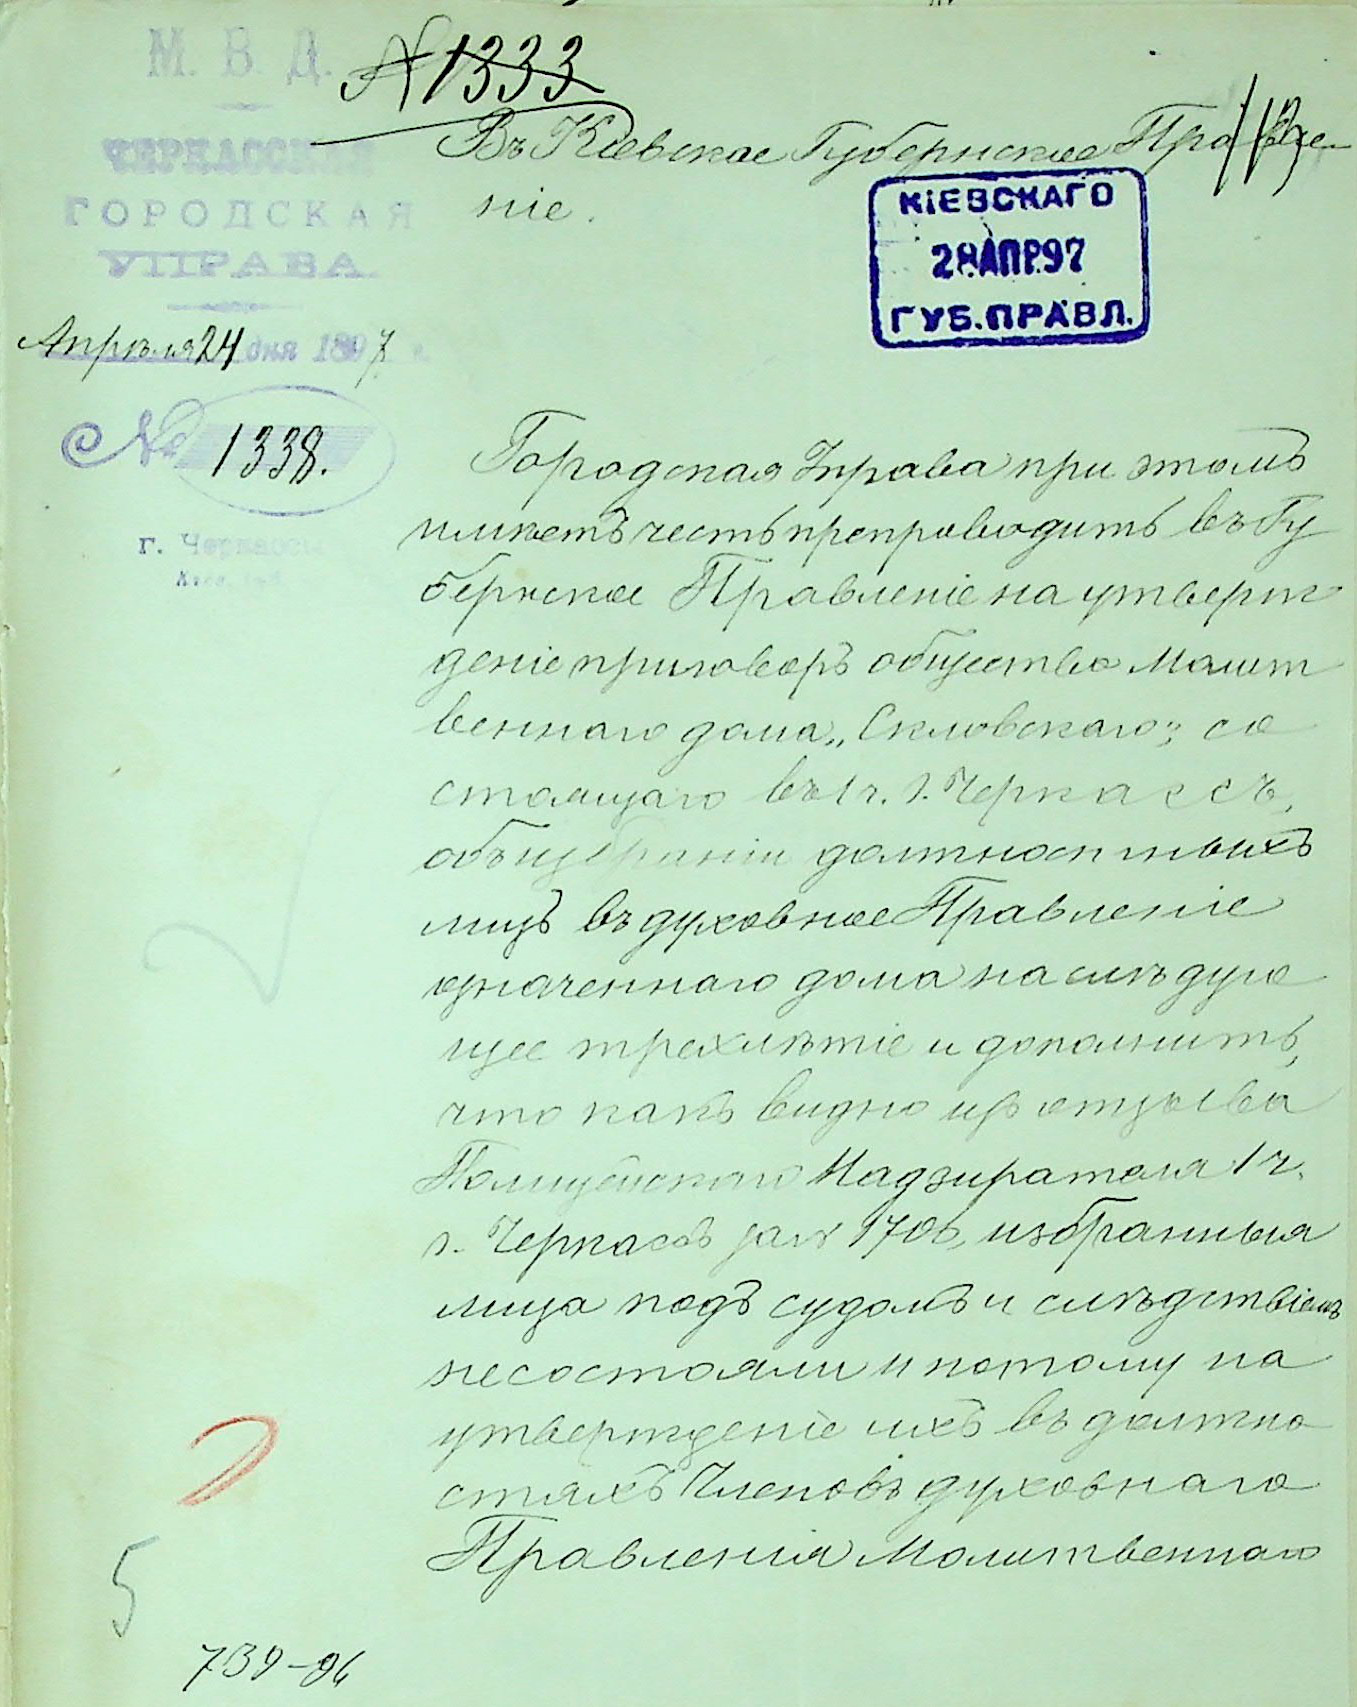 М. В. Д.
№ 1333
ЧЕРКАССКАЯ
ГОРОДСКАЯ
УПРАВА.
Апрѣля 24 дня 1897 г.
№ 1338.
г. Черкассы
Въ Кіевское Губернское Правле-
ніе.
КІЕВСКАГО
28 АПР. 97
ГУБ. ПРАВЛ.
Городская Управа при этомъ
имѣетъ честь препроводить въ Гу
бернское Правленіе на утверж
деніе приговоръ общества молит
веннаго дома „Скловскаго", со
стоящаго въ 1 ч. г. Черкассъ,
объ избраніи должностныхъ
лицъ въ духовное Правленіе
означеннаго дома на слѣдую
щее трехлѣтіе и дополнить,
что какъ видно изъ отзыва
Полицейскаго Надзирателя 1 ч.
г. Черкасъ за № 1706, избранныя
лица подъ судомъ и слѣдствіемъ
несостояли и потому на
утвержденіе ихъ въ должно
стяхъ Членовъ духовнаго
Правленія Молитвеннаго
5
739-96